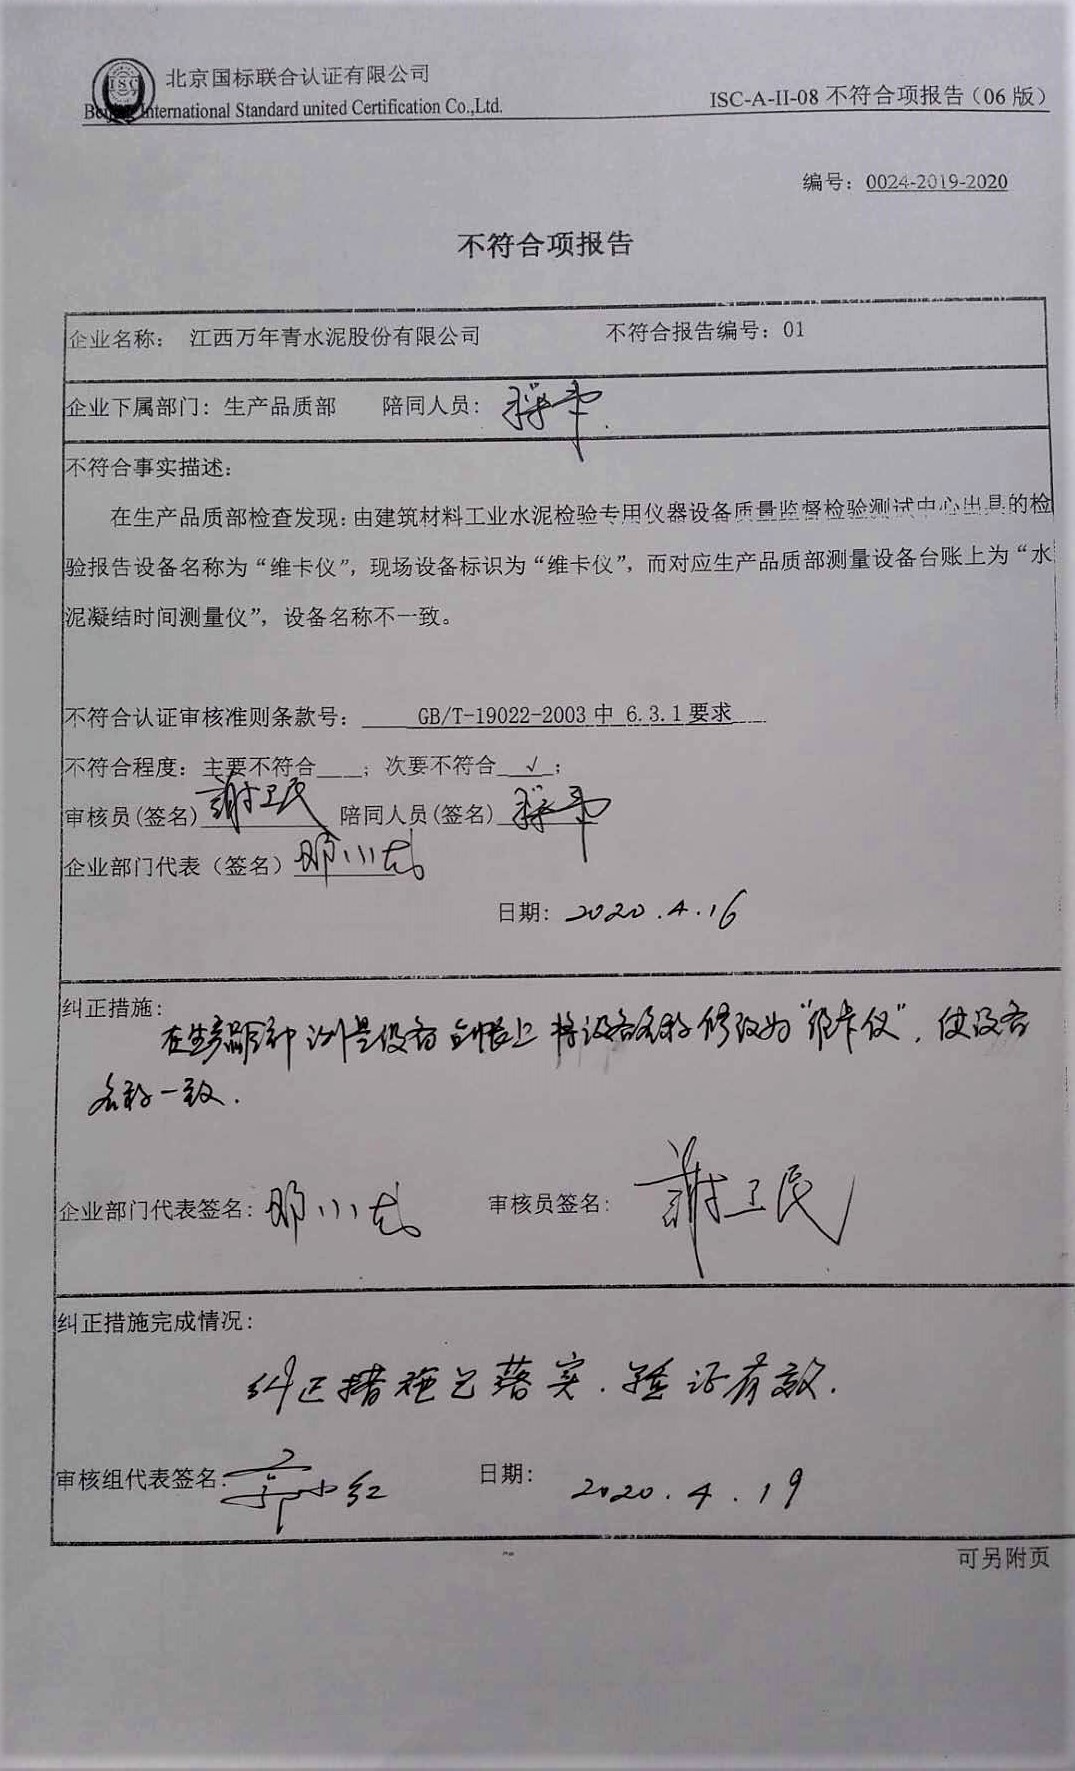 ISC
北京国标联合认证有限公司
Beijing International Standard united Certification Co.,Ltd.
ISC-A-II-08 不符合项报告（06 版）
编号：0024-2019-2020
不符合项报告
企业名称： 江西万年青水泥股份有限公司 不符合报告编号：01
企业下属部门：生产品质部 陪同人员：
不符合事实描述：
在生产品质部检查发现：由建筑材料工业水泥检验专用仪器设备质量监督检验测试中心出具的检
验报告设备名称为“维卡仪”，现场设备标识为“维卡仪”，而对应生产品质部测量设备台账上为“水
泥凝结时间测量仪”，设备名称不一致。
不符合认证审核准则条款号： GB/T-19022-2003 中 6.3.1 要求
不符合程度：主要不符合 ；次要不符合 √ ；
审核员(签名) 谢卫民 陪同人员(签名)
企业部门代表（签名）
日期：2020.4.16
纠正措施：
在生产品质部测量设备台帐上将设备名称修改为“维卡仪”，使设备
名称一致.
企业部门代表签名： 审核员签名：谢卫民
纠正措施完成情况：
纠正措施已落实．验证有效．
审核组代表签名： 日期：2020.4.19
可另附页